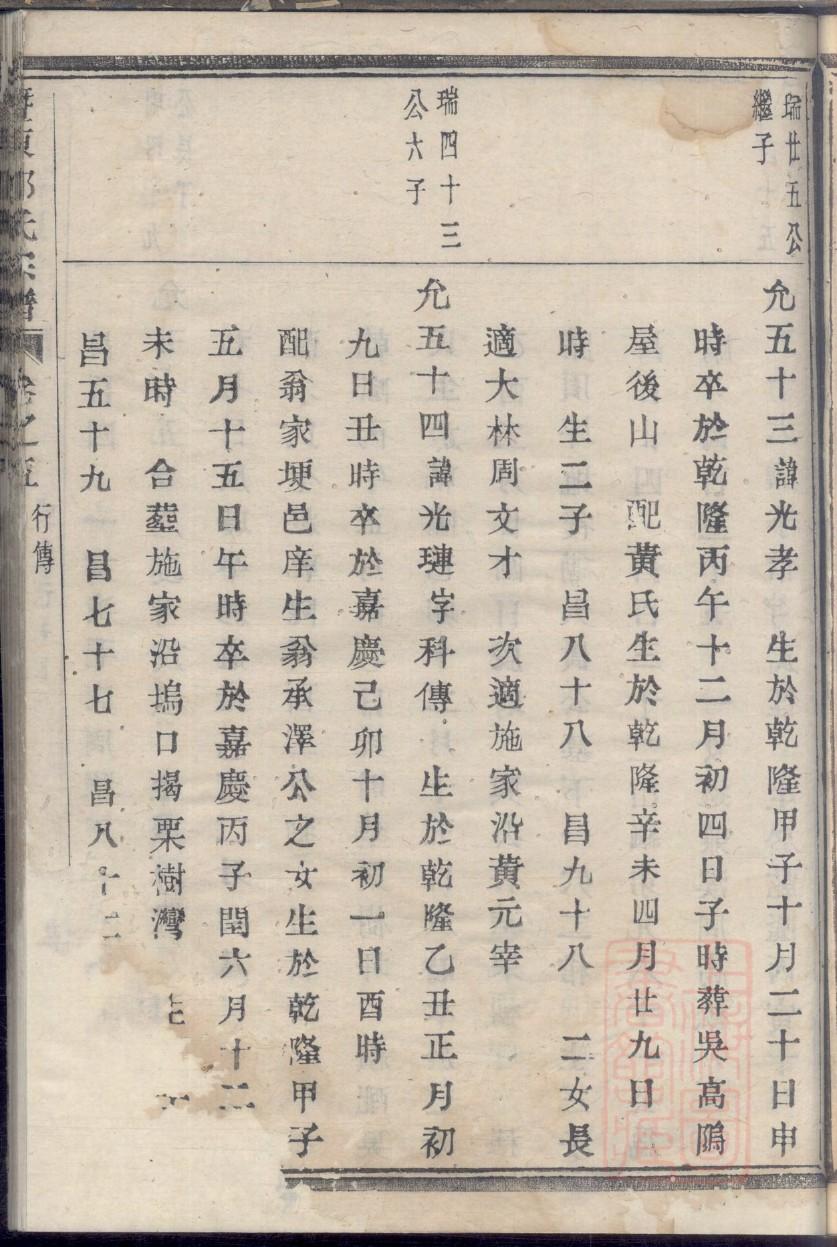 瑞廿五公
繼子
允五十三諱光孝　生於乾隆甲子十月二十日申
時卒於乾隆丙午十二月初四日子時葬吳高隖
屋後山　配黃氏生於乾隆辛未四月廿九日
時　生二子　昌八十八　昌九十八　二女長
適大林周文才　次適施家沿黃元宰
瑞四十三
公六子
允五十四諱光璉字科傳　生於乾隆乙丑正月初
九日丑時卒於嘉慶己卯十月初一日酉時
配翁家埂邑庠生翁承澤公之女生於乾隆甲子
五月十五日午時卒於嘉慶丙子閏六月十二
未時　合塟施家沿塢口揭栗樹灣
昌五十九　昌七十七　昌八十二
氏宗譜　卷之五　行傳